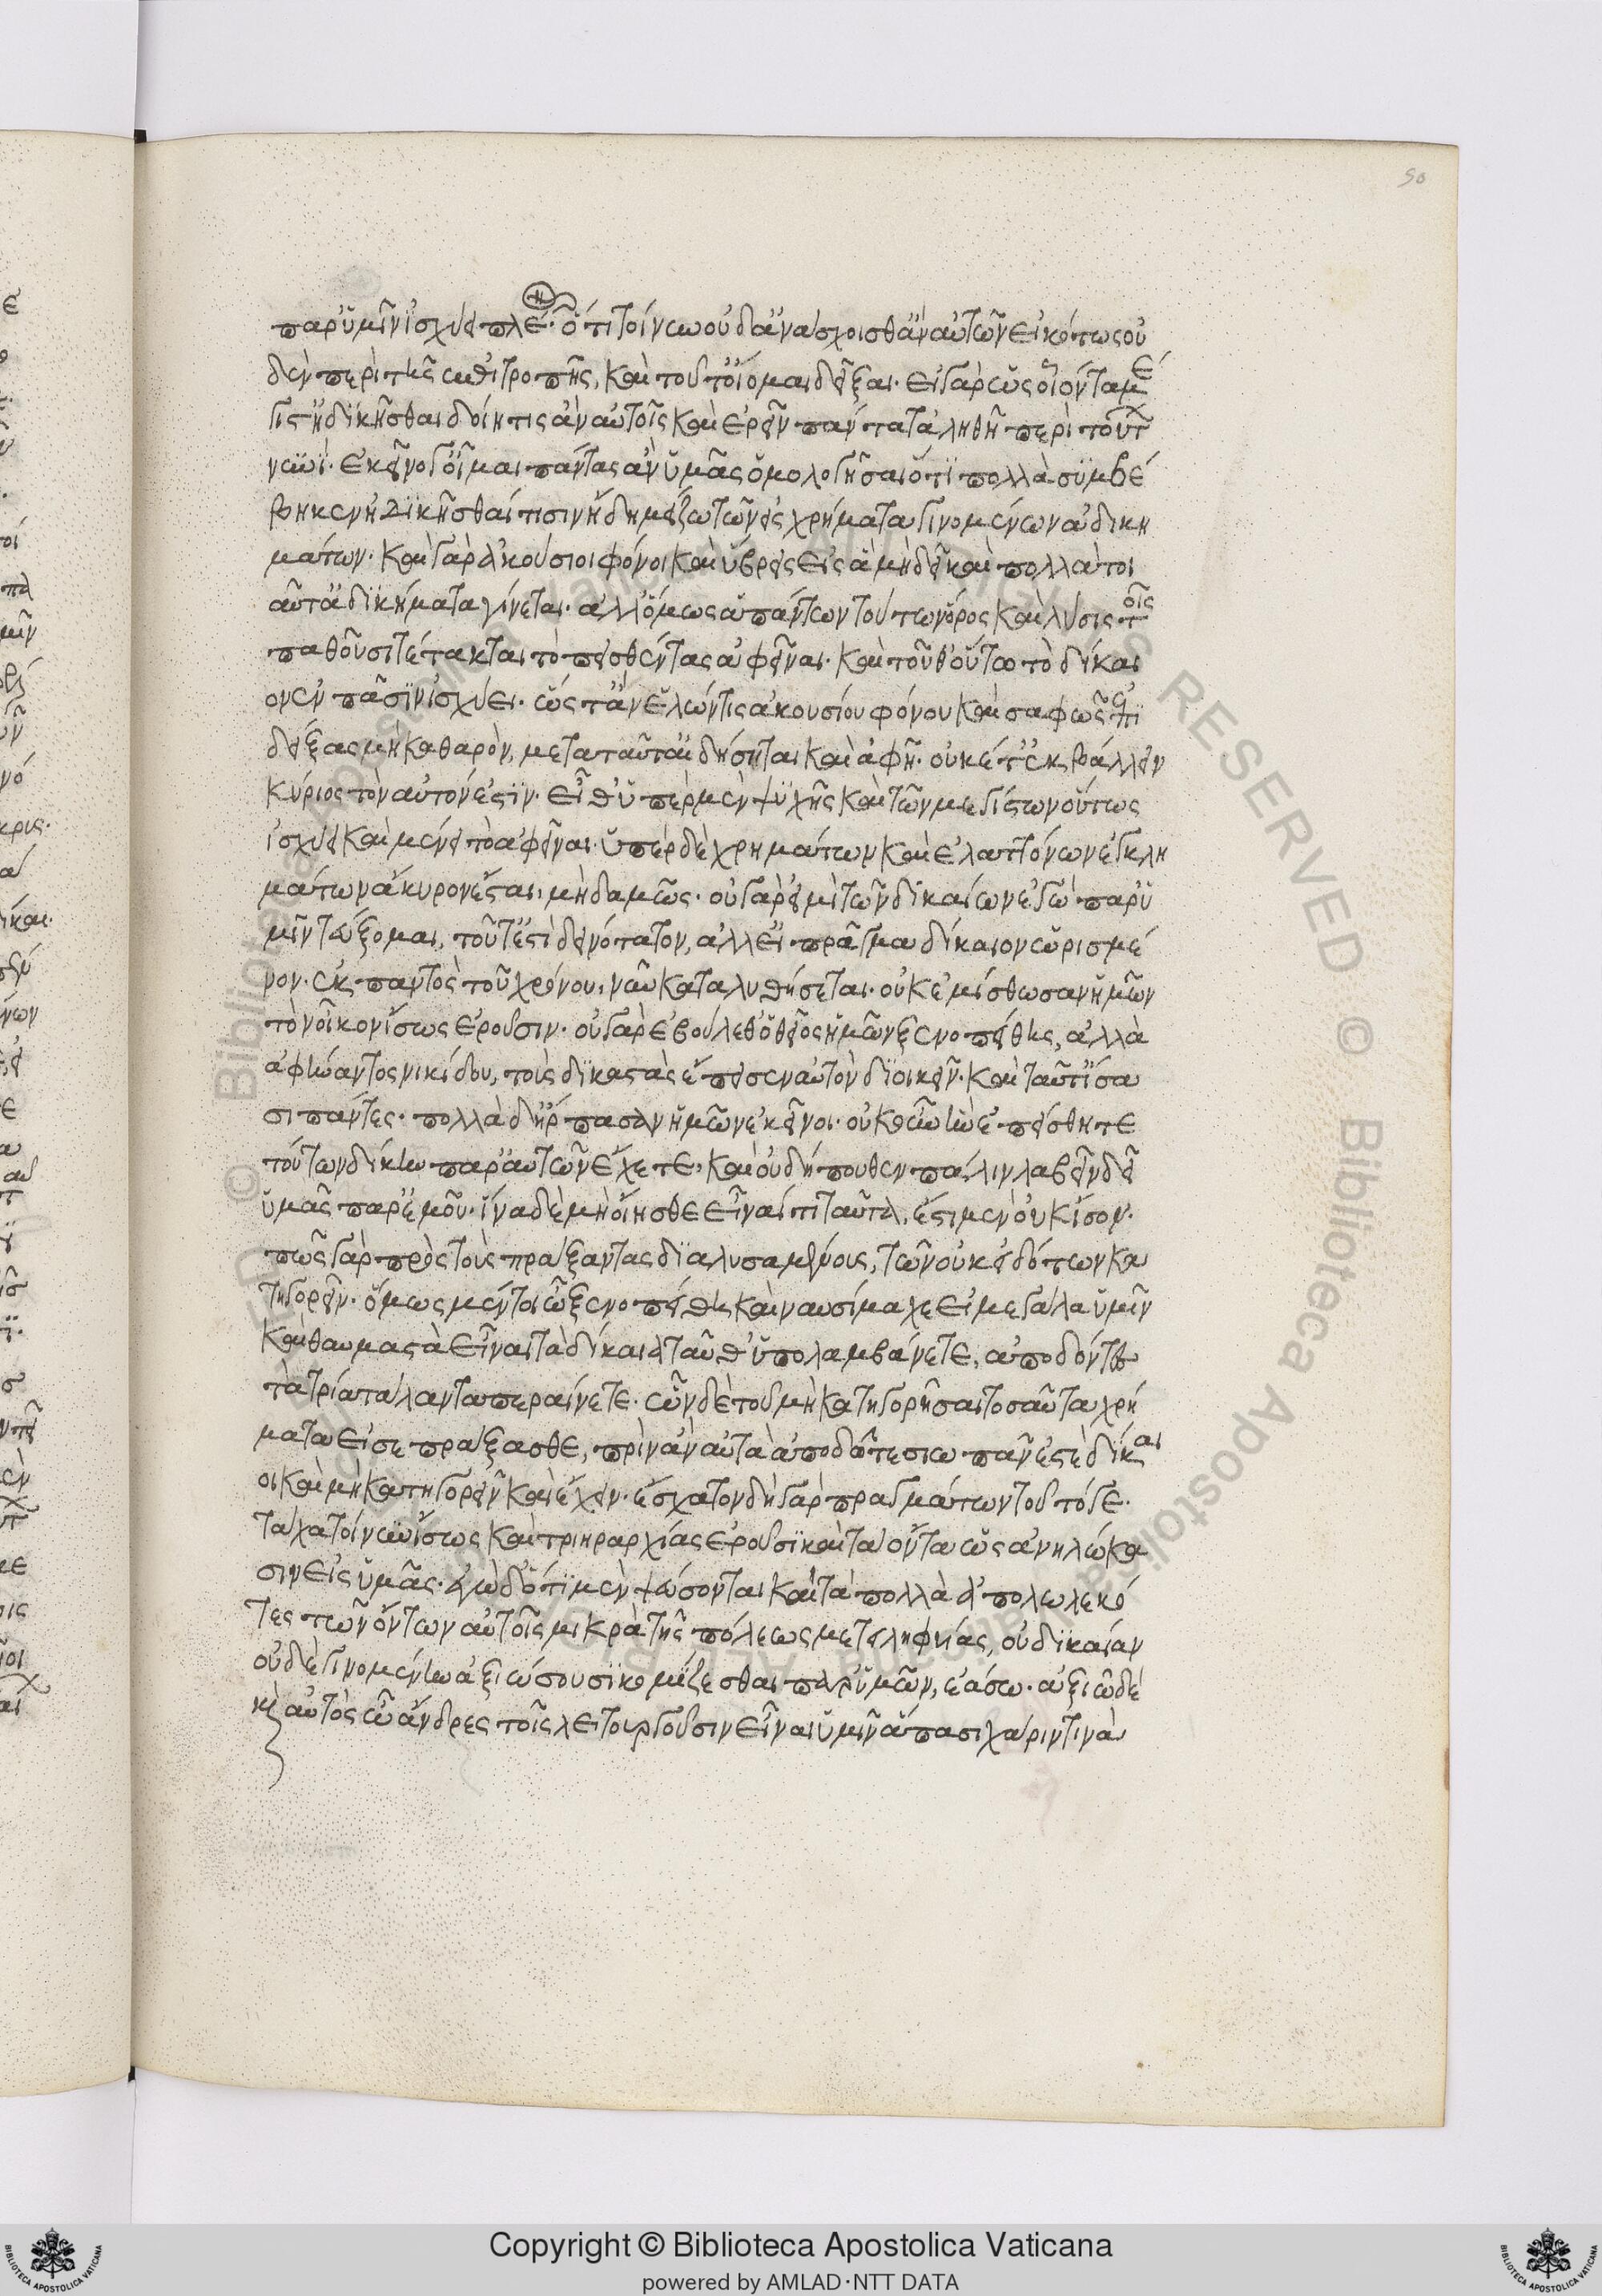 50
παρ' ὑμῖν ἰσχύει πλέον. ὅτι τοίνυν οὐδ' ἀνάσχοισθ' ἂν αὐτῶν εἰκότως οὐ
δὲν περὶ τῆς ἐπιτροπῆς, καὶ τοῦτ' οἴομαι δεῖξαι. εἰ γὰρ ὡς οἷόν τα με
γιστ' ἠδικῆσθαι δοίη τις ἂν αὐτοῖς καὶ ἐρεῖν πάντα τἀληθῆ περὶ τούτων
νυνί. ἐκεῖνό γ' οἶμαι πάντας ἂν ὑμᾶς ὁμολογῆσαι ὅτι πολλὰ συμβέ
βηκεν ἠδικῆσθαί τισιν ἤδη μείζω τῶν εἰς χρήματα γινομένων ἀδικη
μάτων. καὶ γὰρ ἀκούσιοι φόνοι καὶ ὕβρεις εἰς ἃ μὴ δεῖ καὶ πολλὰ τοι
αῦτα ἀδικήματα γίνεται. ἀλλ' ὅμως ἁπάντων τούτων ὅρος καὶ λύσις τοῖς
παθοῦσι τέτακται τὸ πεισθέντας ἀφεῖναι. καὶ τοῦθ' οὕτω τὸ δίκαι
ον ἐν πᾶσιν ἰσχύει. ὥστ' ἂν ἑλών τις ἀκουσίου φόνου καὶ σαφῶς ἐπι
δείξας μὴ καθαρὸν, μετὰ ταῦτ' αἰδήσηται καὶ ἀφῇ. οὐκέτ' ἐκβάλλειν
κύριος τὸν αὐτόν ἐστιν. εἶθ' ὑπὲρ μὲν ψυχῆς καὶ τῶν μεγίστων οὕτως
ἰσχύει καὶ μένει τὸ ἀφεῖναι. ὑπὲρ δὲ χρημάτων καὶ ἐλαττόνων ἐγκλη
μάτων ἄκυρον ἔσται, μηδαμῶς. οὐ γὰρ εἰ μὴ τῶν δικαίων ἐγὼ παρ' ὑ
μῖν τεύξομαι, τοῦτ' ἔστι δεινότατον, ἀλλ' εἰ πρᾶγμα δίκαιον ὡρισμέ
νον. ἐκ παντὸς τοῦ χρόνου, νῦν καταλυθήσεται. οὐκ ἐμίσθωσαν ἡμῶν
τὸν οἶκον ἴσως ἐροῦσιν. οὐ γὰρ ἐβούλεθ' ὁ θεῖος ἡμῶν ξενοπείθης, ἀλλὰ
ἀφήναντος νικίδου, τοὺς δικαστὰς ἔπεισεν αὐτὸν διοικεῖν. καὶ ταῦτ' ἴσα
σι πάντες. πολλὰ διήρπασαν ἡμῶν ἐκεῖνοι. οὐκοῦν ἣν ἐπείσθητε
τούτων δίκην παρ' αὐτῶν ἔχετε, καὶ οὐ δήπουθεν πάλιν λαβεῖν δεῖ
ὑμᾶς παρ' ἐμοῦ. ἵνα δὲ μὴ οἴησθε εἶναί τι ταῦτα, ἔστι μὲν οὐκ ἴσον.
πῶς γὰρ πρὸς τοὺς πράξαντας διαλυσαμένους, τῶν οὐκ εἰδότων κα
τηγορεῖν. ὅμως μέντοι ὦ ξενοπείθη καὶ ναυσίμαχε εἰ μεγάλα ὑμῖν
καὶ θαυμαστὰ εἶναι τὰ δίκαια ταῦθ' ὑπολαμβάνετε, ἀποδόντες
τὰ τρία τάλαντα περαίνετε. ὧν δὲ τοῦ μὴ κατηγορῆσαι τοσαῦτα χρή
ματα εἰσεπράξασθε, πρὶν ἂν αὐτὰ ἀποδῶτε σιωπᾶν ἐστὲ δίκαι
οι καὶ μὴ κατηγορεῖν καὶ ἔχειν. ἔσχατον δὴ γὰρ πραγμάτων τοῦτό γε.
τάχα τοίνυν ἴσως καὶ τριηραρχίας ἐροῦσι καὶ τὰ ὄντα ὡς ἀνηλώκα
σιν εἰς ὑμᾶς. ἐγὼ δ' ὅτι μὲν ψεύσονται καὶ τὰ πολλὰ ἀπολωλεκό
τες τῶν ὄντων αὐτοῖς μικρὰ τῆς πόλεως μετειληφυίας, οὐ δικαίαν
οὐδὲ γινομένην ἀξιώσουσι κομίζεσθαι παρ' ὑμῶν, ἐάσω. ἀξιῶ δὲ
καὶ αὐτὸς ὦ ἄνδρες τοῖς λειτουργοῦσιν εἶναι ὑμῖν ἅπασι χάριν τινὰ
Copyright © Biblioteca Apostolica Vaticana
powered by AMLAD·NTT DATA